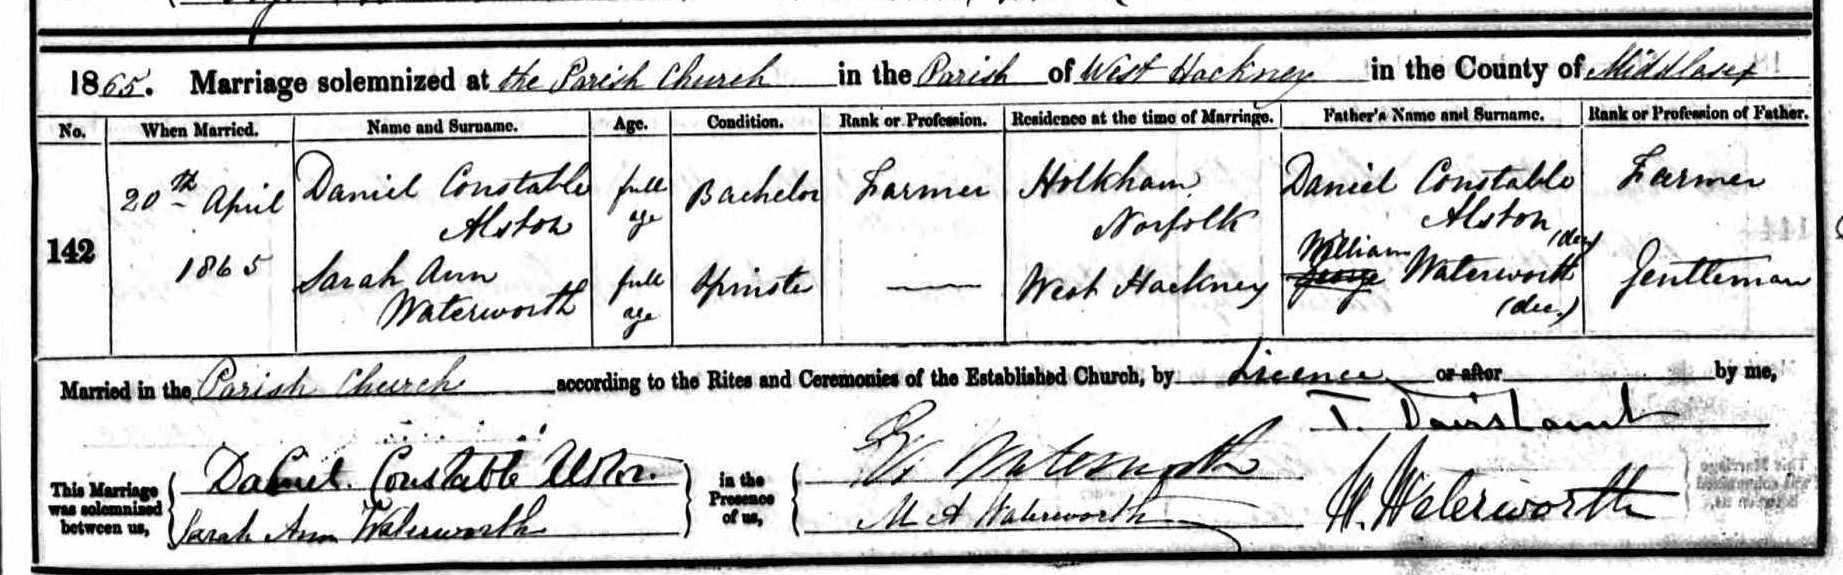 1865. Marriage solemnized at the Parish Church in the Parish of West Hackney in the County of Middlesex
No. When Married. Name and Surname. Age. Condition. Rank or Profession. Residence at the time of Marriage. Father's Name and Surname. Rank or Profession of Father.
142
20th April
1865
Daniel Constable
Alston
full
age
Bachelor
Farmer
Holkham
Norfolk
Daniel Constable
Alston (dec)
Farmer
Sarah Ann
Waterworth
full
age
Spinster
West Hackney
William
George Waterworth
(dec.)
Gentleman
Married in the Parish Church according to the Rites and Ceremonies of the Established Church, by Licence or after by me,
T.
This Marriage
was solemnized
between us,
Daniel Constable Alston.
Sarah Ann Waterworth
in the
Presence
of us,
Waterworth
M A Waterworth
H. Waterworth